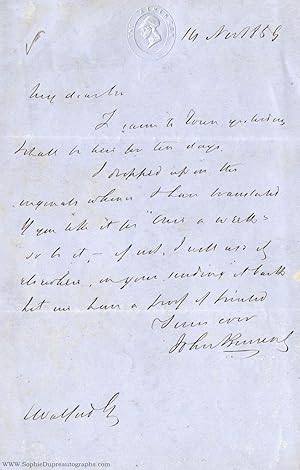 14 Nov 1859
My dear Sir
I came to Town yesterday
& shall be here for ten days.
I dropped upon the
originals whence I have translated
If you like it for "Once a Week"
so be it, – if not, I will use it
elsewhere, on your sending it back
Let me have a proof if printed
Yours ever
John Bowring
Walford Esq
www.SophieDupreautographs.com